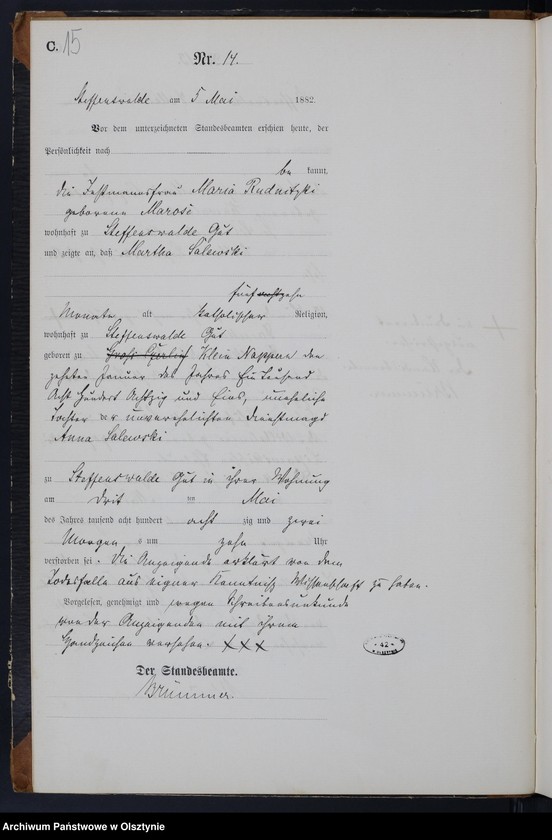 C. 15
Nr. 14.
Steffenswalde am 5 Mai 1882.
Vor dem unterzeichneten Standesbeamten erschien heute, der
Persönlichkeit nach
be kannt,
die Maria Rudnitzki
geborene Marose
wohnhaft zu Steffenswalde Gut
und zeigte an, daß Martha Salewski
fünfzehn
Monate alt katholischer Religion,
wohnhaft zu Steffenswalde Gut
geboren zu Klein Nappern den
zehnten Januar des Jahres Ein tausend
Acht Hundert Achtzig und Eins, uneheliche
Tochter der unverehelichten Dienstmagd
Anna Salewski
zu Steffenswalde Gut in ihrer Wohnung
am Drit ten Mai
des Jahres tausend acht hundert acht zig und zwei
Morgens um zehn Uhr
verstorben sei. Die Anzeigende erklärt von dem
Todesfalle aus eigner Kenntniß Wissenschaft zu haben.
Vorgelesen, genehmigt und wegen Schreibensunkunde
von der Anzeigenden mit ihrem
Handzeichen versehen. XXX
Der Standesbeamte.
Brümmer.
42
Archiwum Państwowe w Olsztynie